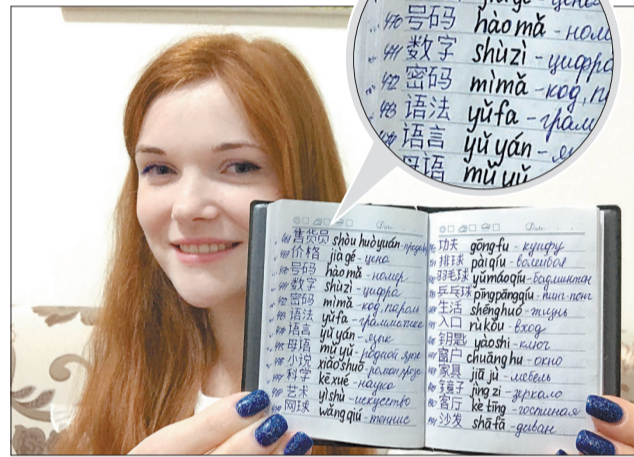 号码 hàomǎ - ном
数字 shùzì - цифра
密码 mìmǎ - код, п
语法 yǔfa - грам
语言 yǔ yán - я
母语 mǔ yǔ
Date
售货员 shòu huò yuán - прода
价格 jià gé - цена
号码 hào mǎ - номер
数字 shùzì - цифра
密码 mìmǎ - код, пароль
语法 yǔfa - грамматика
语言 yǔ yán - язык
母语 mǔ yǔ - родной язык
小说 xiǎo shuō - роман, проза
科学 kē xué - наука
艺术 yì shù - искусство
网球 wǎng qiú - теннис
Date
功夫 gōng-fu - кунгфу
排球 pái qiú - волейбол
羽毛球 yǔmáoqiú - бадминтон
乒乓球 pīngpāngqiú - пинг-понг
生活 shēnghuó - жизнь
入口 rù kǒu - вход
钥匙 yào shi - ключ
窗户 chuāng hu - окно
家具 jiā jù - мебель
镜子 jìng zi - зеркало
客厅 kè tīng - гостиная
沙发 shā fā - диван